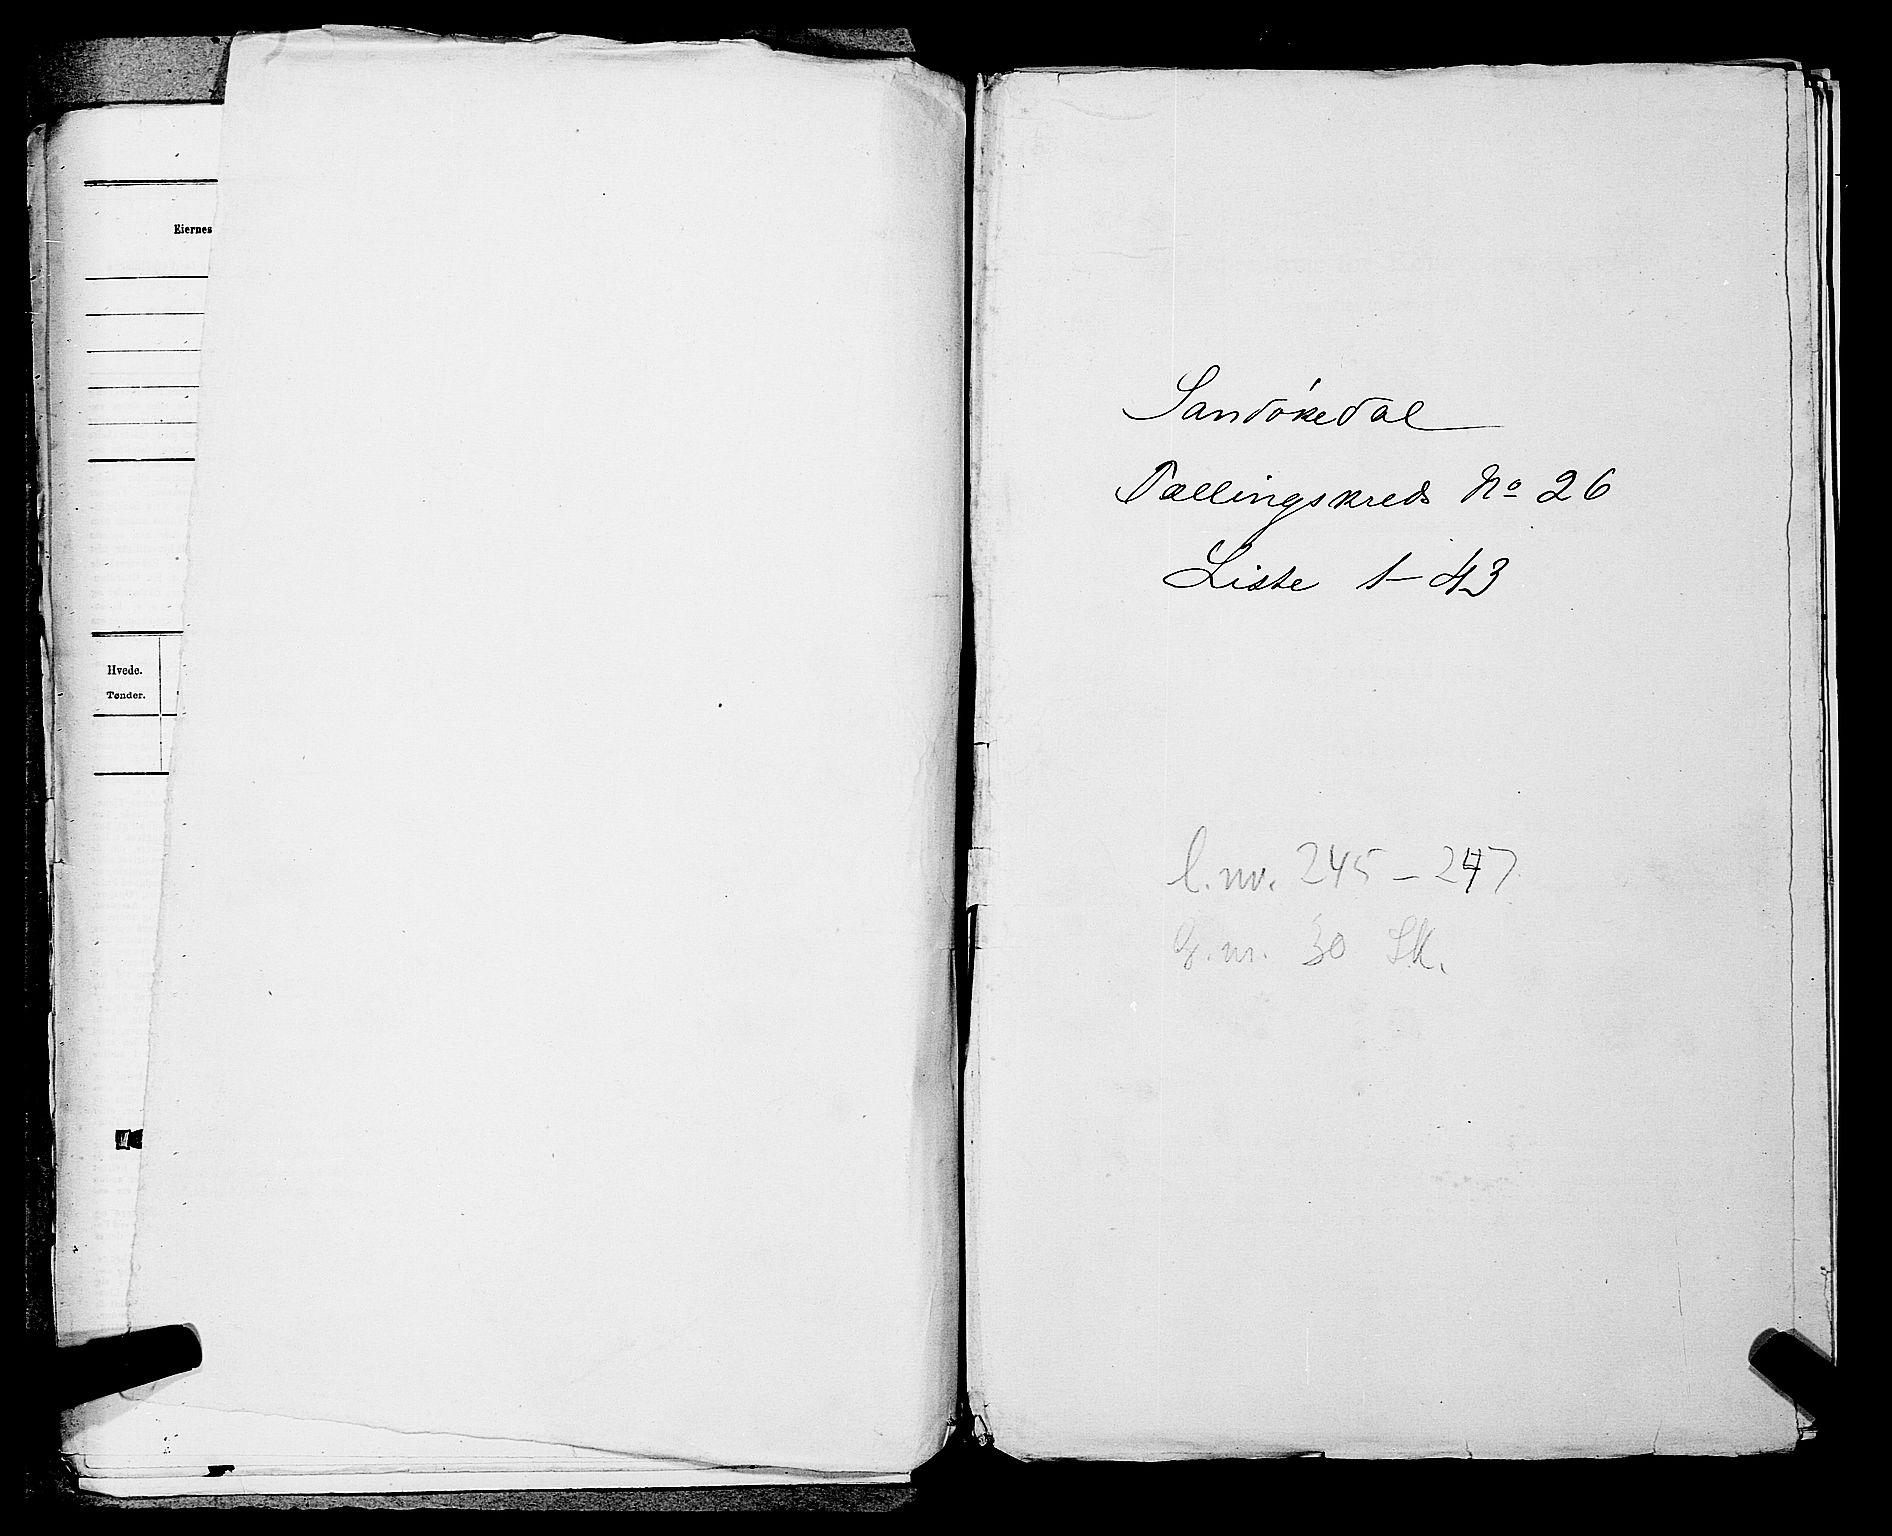 Eiernes
Hvede.
Tønder.
Sandökedal
Tællingskreds No 26
Liste 1-43
l.nr. 245-247
G.nr. 30 Sk.